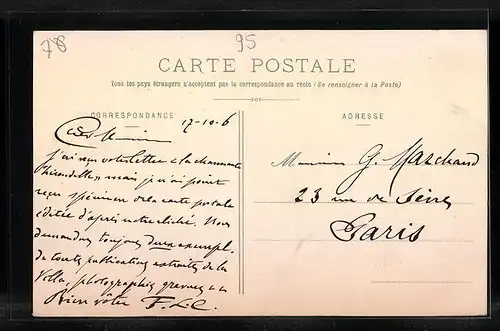 78
95
CARTE POSTALE
Tous les pays étrangers n'acceptent pas la correspondance au recto (Se renseigner à la Poste)
CORRESPONDANCE
17-10-6
Cher Monsieur
j'ai reçu votre lettre à la charmante
hirondelle, mais je n'ai point
reçu spécimen de la carte postale
éditée d'après notre cliché. Nous
demandons toujours deux exempl.
de toutes publications extraites de la
Villa, photographies gravures &a
Bien vôtre F. L. C.
ADRESSE
Monsieur G. Marchand
23 rue de Sèvres
Paris